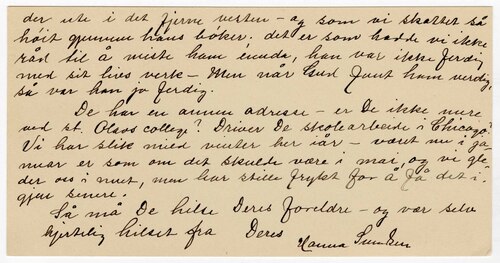 der ute i det fjerne vesten - og som vi skattet så
höit gjennem hans böker. det er som hadde vi ikke
råd til å miste ham enda, han var ikke ferdig
med sit livs verk - Men når Gud fant ham verdig,
så var han jo ferdig.
De har en annen adresse - er De ikke mere
ved st. Olavs college? Driver De skolearbeide i Chicago?
Vi har slik mild vinter her iår - været nu i ja-
nuar er som om det skulde være i mai, og vi gle-
der oss i nuet, men har stille frykt for å få det i-
gjen senere.
Så må De hilse Deres foreldre - og vær selv
hjertelig hilset fra Deres
Hanna